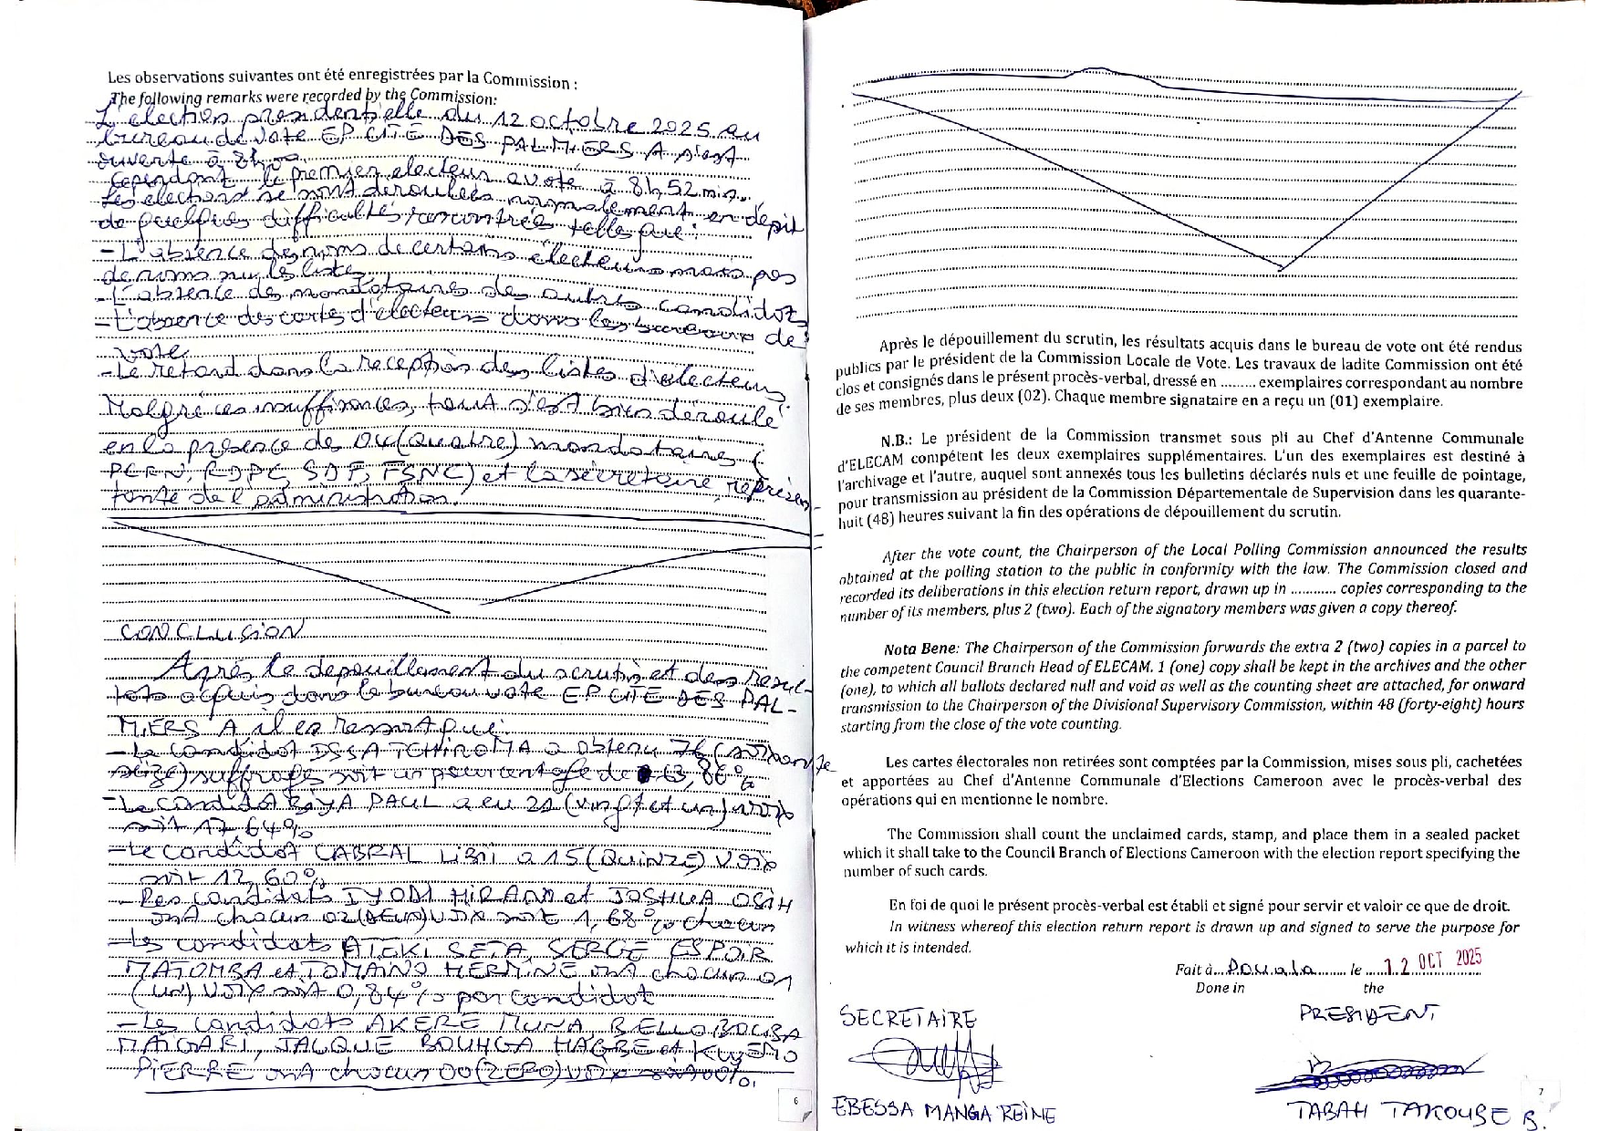 Les observations suivantes ont été enregistrées par la Commission :
The following remarks were recorded by the Commission:
L'élection présidentielle du 12 octobre 2025 au
bureau de vote EP CITE DES PALMIERS A s'est
ouverte à 8h00
Cependant le premier electeur a voté à 8h52 min.
Les élections se sont déroulées normalement en dépit
de quelques difficultés rencontrées telles que :
- L'absence des noms de certains électeurs mais pas
de noms sur les listes
- L'absence des mandataires des autres candidats
- L'absence des cartes d'électeurs dans les bureaux de
vote
- Le retard dans la reception des listes d'electeurs
Malgré ces insuffisances, tout s'est bien déroulé
en la présence de 04 (Quatre) mandataires (
PCRN, RDPC, SDF, FSNC) et la sécretaire, représen-
tante de l'administration.
CONCLUSION
Après le depouillement du scrutin et des resul-
tats acquis dans le bureau vote EP CITE DES PAL-
MIERS A, il es ressort que:
- Le candidat ISSA TCHIROMA a obtenu 76 (soixante
seize) suffrages soit un pourcentage de 63,86%
- Le candidat BIYA PAUL a eu 21 (vingt et un) voix
soit 17,64%
- Le candidat CABRAL LIBII a 15 (QUINZE) voix
soit 12,60%
- Les candidats IYODI HIRAM et JOSHUA OSIH
ont chacun 02 (DEUX) voix soit 1,68% chacun
- Les candidats ATEKI SETA, SERGE ESPOIR
MATOMBA et TOMAINO HERMINE ont chacun 01
(un) voix soit 0,84% par candidat
- Les candidats AKERE MUNA, BELLO BOUBA
MAIGARI, JACQUE BOUHGA HAGBE et KWEMO
PIERRE ont chacun 00 (ZERO) voix soit 00%.
6
Après le dépouillement du scrutin, les résultats acquis dans le bureau de vote ont été rendus
publics par le président de la Commission Locale de Vote. Les travaux de ladite Commission ont été
clos et consignés dans le présent procès-verbal, dressé en ......... exemplaires correspondant au nombre
de ses membres, plus deux (02). Chaque membre signataire en a reçu un (01) exemplaire.
N.B.: Le président de la Commission transmet sous pli au Chef d'Antenne Communale
d'ELECAM compétent les deux exemplaires supplémentaires. L'un des exemplaires est destiné à
l'archivage et l'autre, auquel sont annexés tous les bulletins déclarés nuls et une feuille de pointage,
pour transmission au président de la Commission Départementale de Supervision dans les quarante-
huit (48) heures suivant la fin des opérations de dépouillement du scrutin.
After the vote count, the Chairperson of the Local Polling Commission announced the results
obtained at the polling station to the public in conformity with the law. The Commission closed and
recorded its deliberations in this election return report, drawn up in ............ copies corresponding to the
number of its members, plus 2 (two). Each of the signatory members was given a copy thereof.
Nota Bene: The Chairperson of the Commission forwards the extra 2 (two) copies in a parcel to
the competent Council Branch Head of ELECAM. 1 (one) copy shall be kept in the archives and the other
(one), to which all ballots declared null and void as well as the counting sheet are attached, for onward
transmission to the Chairperson of the Divisional Supervisory Commission, within 48 (forty-eight) hours
starting from the close of the vote counting.
Les cartes électorales non retirées sont comptées par la Commission, mises sous pli, cachetées
et apportées au Chef d'Antenne Communale d'Elections Cameroon avec le procès-verbal des
opérations qui en mentionne le nombre.
The Commission shall count the unclaimed cards, stamp, and place them in a sealed packet
which it shall take to the Council Branch of Elections Cameroon with the election report specifying the
number of such cards.
En foi de quoi le présent procès-verbal est établi et signé pour servir et valoir ce que de droit.
In witness whereof this election return report is drawn up and signed to serve the purpose for
which it is intended.
Fait à Douala le 12 OCT 2025
Done in the
SECRETAIRE
PRESIDENT
EBESSA MANGA REINE
TABAH TAKOUBE B.
7